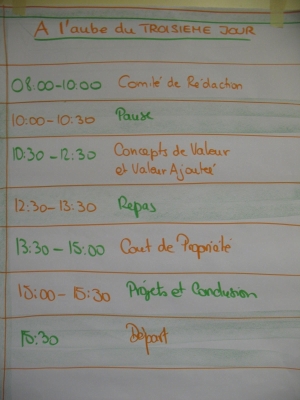 A l'aube du TROISIEME JOUR
08:00-10:00 Comité de Rédaction
10:00-10:30 Pause
10:30-12:30 Concepts de Valeur
et Valeur Ajoutée
12:30-13:30 Repas
13:30-15:00 Cout de Propriété
15:00-15:30 Projets et Conclusion
15:30 Départ